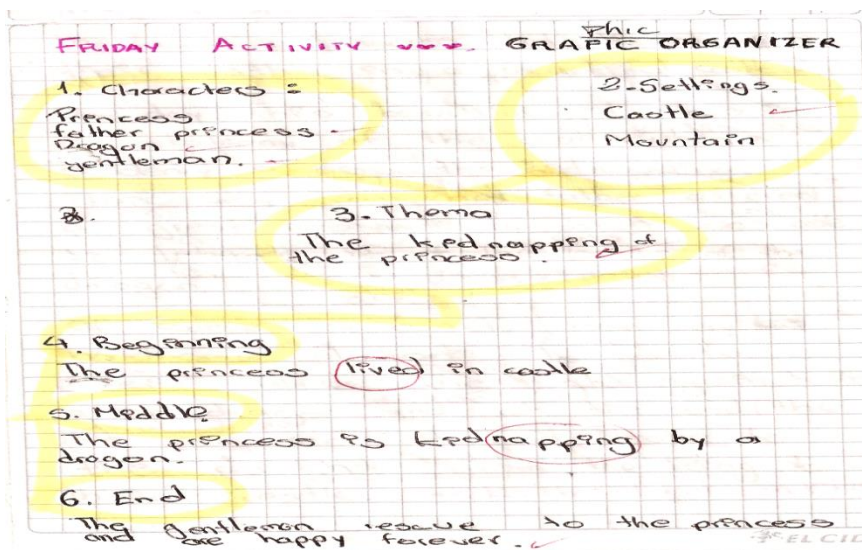 phic
FRIDAY ACTIVITY GRAFIC ORGANIZER
1. Characters:
Princess
father princess.
Dragon
gentleman.
2-Settings.
Castle
Mountain
3.
3. Thema
The kidnapping of
the princess.
4. Beginning
The princess lived in castle
5. Middle
The princess is kidnapping by a
dragon.
6. End
The gentleman rescue to the princess
and are happy forever.
EL CID